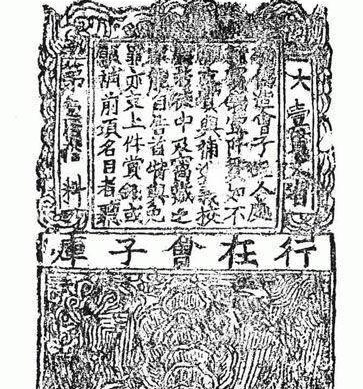 大壹貫 省
偽造會子犯人處
賞 如不
支賞與補進義校
徒中及窩藏之
能自告首特與免
罪亦支上件賞錢或
願補前項名目者聽
第 料
行在會子庫